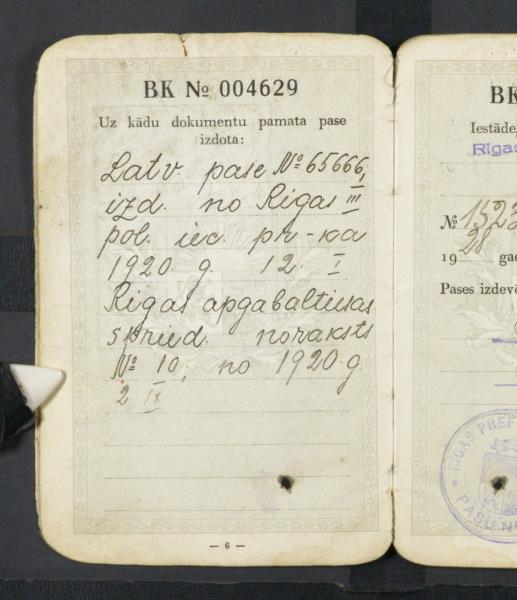 BK № 004629
Uz kādu dokumentu pamata pase
izdota:
Latv. pase № 65666,
izd. no Rigas III
pol. iec. pr-ka
1920. g. 12. I
Rigas apgabaltiesas
spried. noraksts
№ 10, no 1920. g.
2 IX
— 6 —
BK
Iestāde,
Rīgas
№ 1523
1928 gad
Pases izdevē
RĪGAS PREF
PASU NO